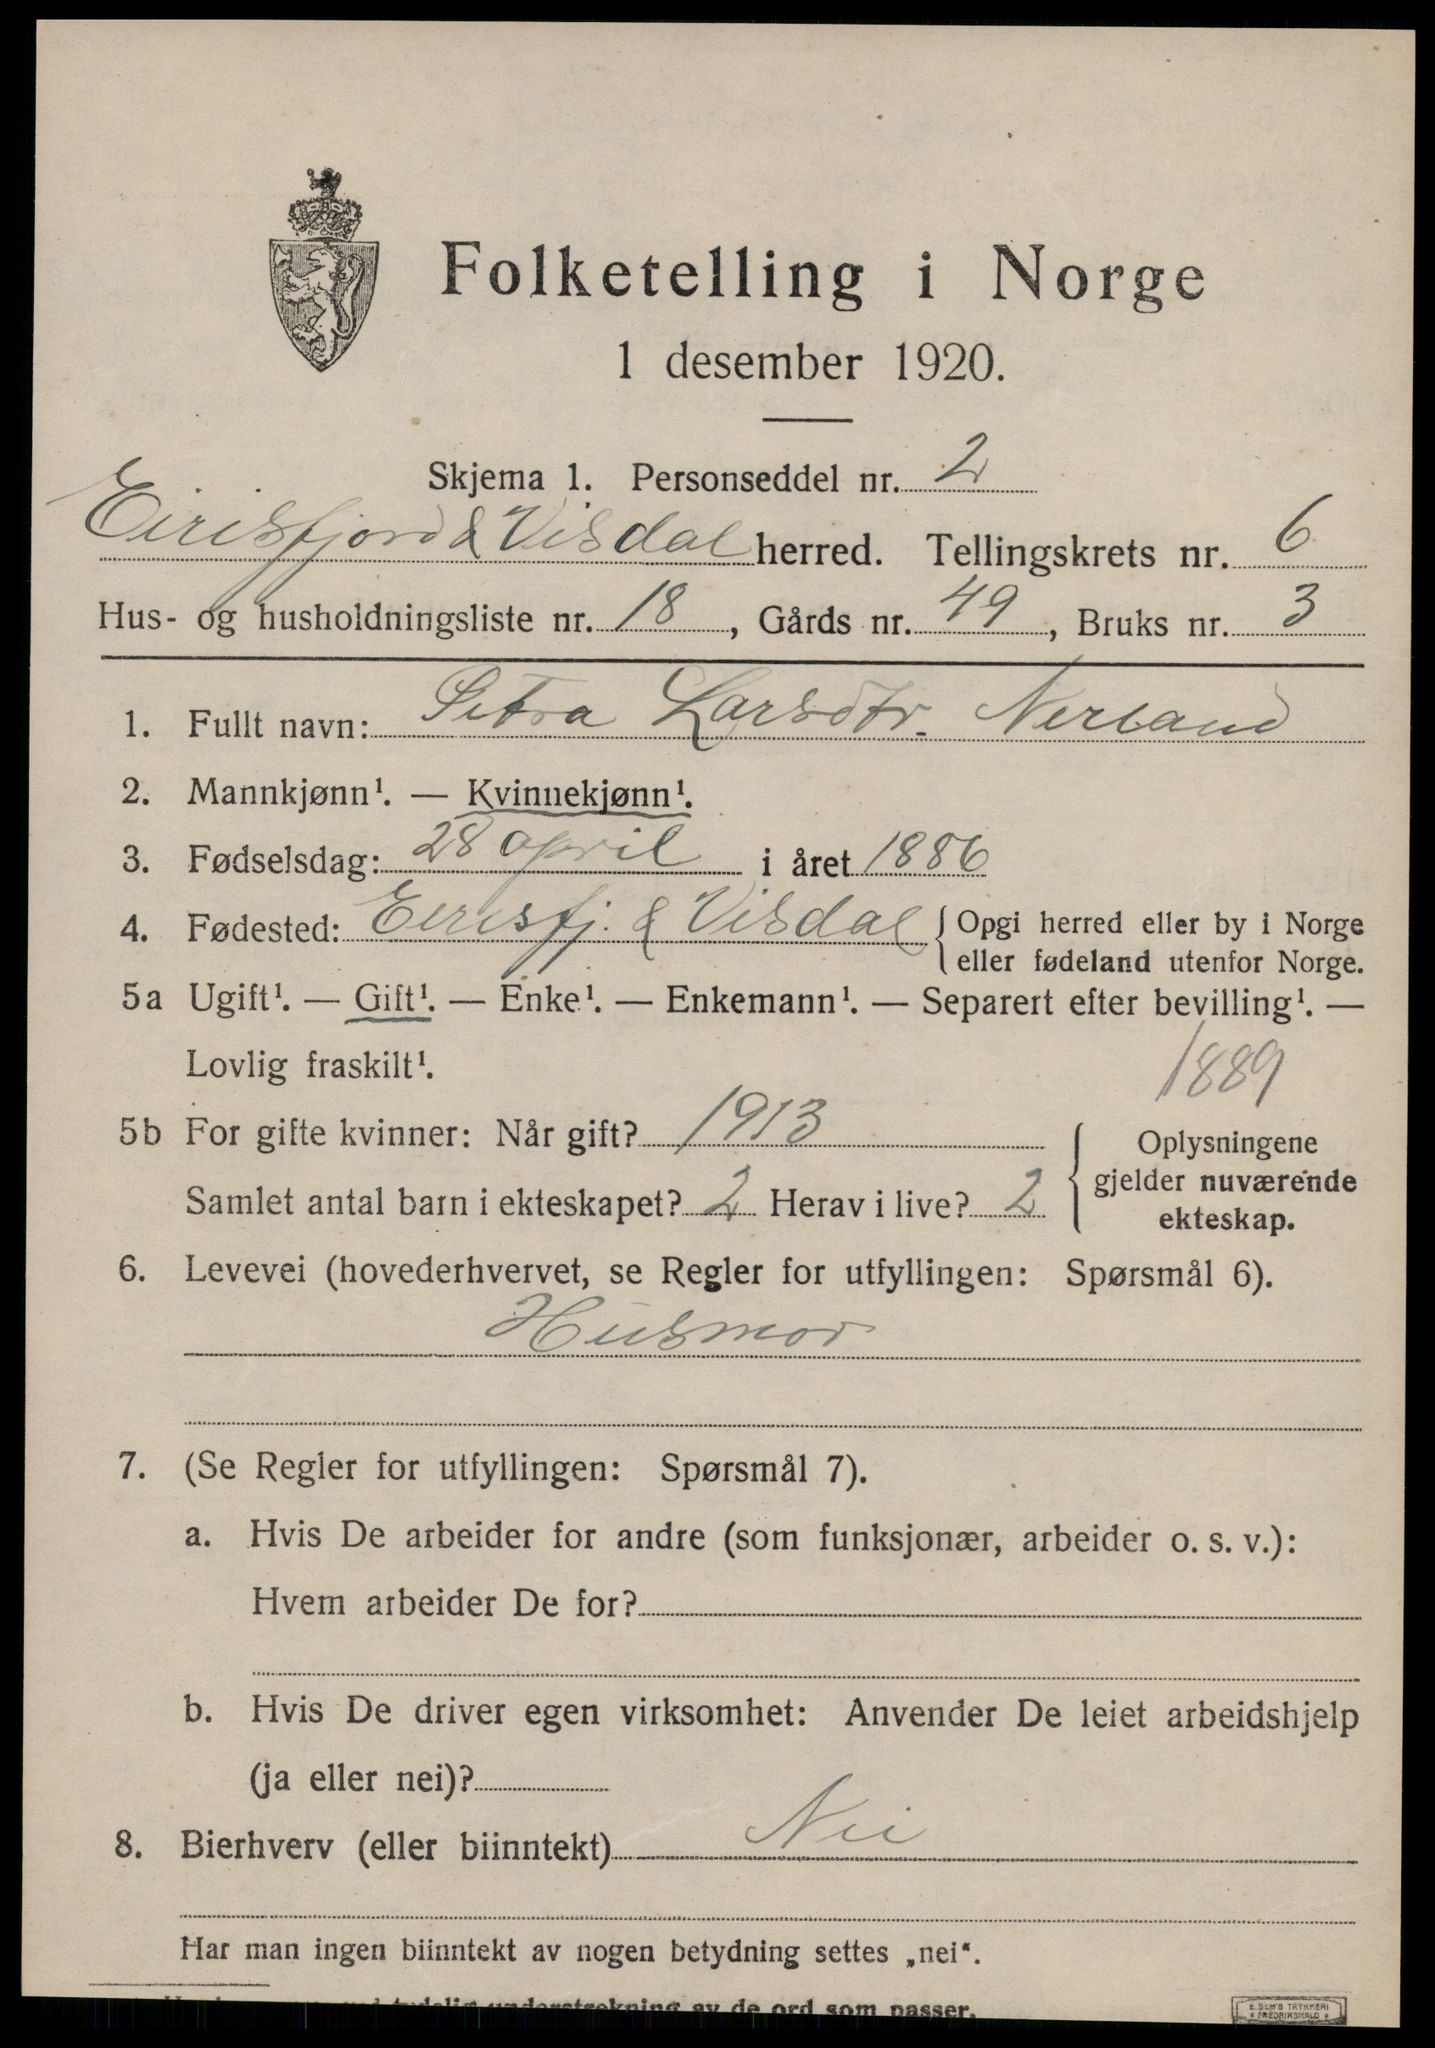 Folketelling i Norge
1 desember 1920.
Skjema 1. Personseddel nr. 2
Eirisfjord & Visdal herred. Tellingskrets nr. 6
Hus- og husholdningsliste nr. 18, Gårds nr. 49, Bruks nr. 3
1. Fullt navn: Petra Larsdtr. Nerland
2. Mannkjønn¹. — Kvinnekjønn¹.
3. Fødselsdag: 28 april i året 1886
4. Fødested: Eirisfj. & Visdal { Opgi herred eller by i Norge
eller fødeland utenfor Norge.
5a Ugift¹. — Gift¹. — Enke¹. — Enkemann¹. — Separert efter bevilling¹. —
Lovlig fraskilt¹.
1889
5b For gifte kvinner: Når gift? 1913
Samlet antal barn i ekteskapet? 2 Herav i live? 2
Oplysningene
gjelder nuværende
ekteskap.
6. Levevei (hovederhvervet, se Regler for utfyllingen: Spørsmål 6).
Husmor
7. (Se Regler for utfyllingen: Spørsmål 7).
a. Hvis De arbeider for andre (som funksjonær, arbeider o. s. v.):
Hvem arbeider De for?
b. Hvis De driver egen virksomhet: Anvender De leiet arbeidshjelp
(ja eller nei)?
8. Bierhverv (eller biinntekt) Nei
Har man ingen biinntekt av nogen betydning settes „nei“.
tydelig understrekning av de ord som passer.
E. SEM'S TRYKKERI
* FREDRIKSHALD *